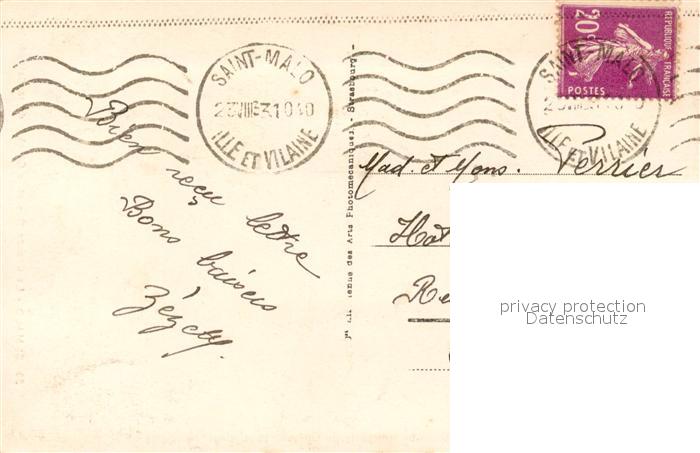 SAINT-MALO
23 VIII 31 0 40
ILLE ET VILAINE
20c
REPUBLIQUE FRANÇAISE
POSTES
SAINT-MALO
ILLE ET VILAINE
Bien reçu lettre
Bons baisers
Zézette
des Arts Photomécaniques. - Strasbourg.
Mad. et Mons. Verrier
Hôt
Re
privacy protection
Datenschutz